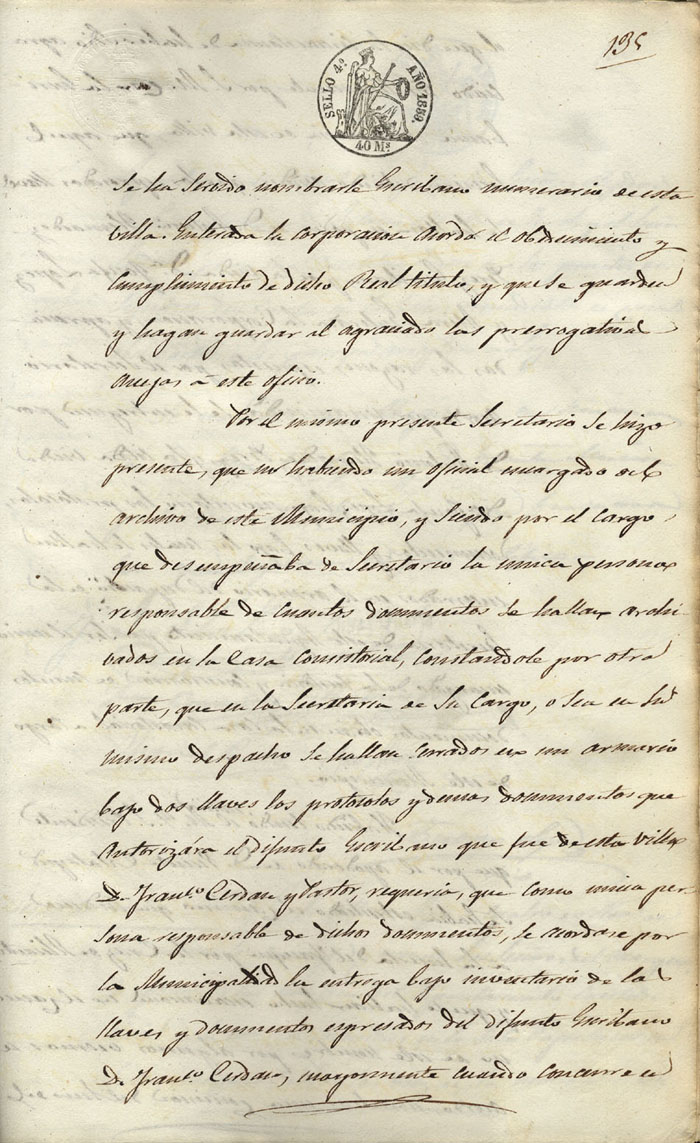 135
SELLO 4º AÑO 1859.
40 Mˢ
Se ha servido nombrarle Escribano numerario de esta
villa. Enterada la corporacion acordó el obedecimiento y
cumplimiento de dicho Real titulo, y que se guarden
y hagan guardar al agraciado las prerrogativas
anejas á este oficio.
Por el mismo presente Secretario se hizo
presente, que no habiendo un oficial encargado del
archivo de este Municipio, y siendo por el cargo
que desempeñaba de Secretario la unica persona
responsable de cuantos documentos se hallan archi
vados en la Casa Consistorial, constandole por otra
parte, que en la Secretaria de su cargo, o sea en su
mismo despacho se hallan cerrados en un armario
bajo dos llaves los protocolos y demas documentos que
autorizára el difunto Escribano que fue de esta villa
D. Franᶜᵒ Cerdan y Pastor, requeria, que como unica per
sona responsable de dichos documentos, se acordase por
la Municipalidad la entrega bajo inventario de las
llaves y documentos espresados del difunto Escribano
D. Franᶜᵒ Cerdan, mayormente cuando concurre el